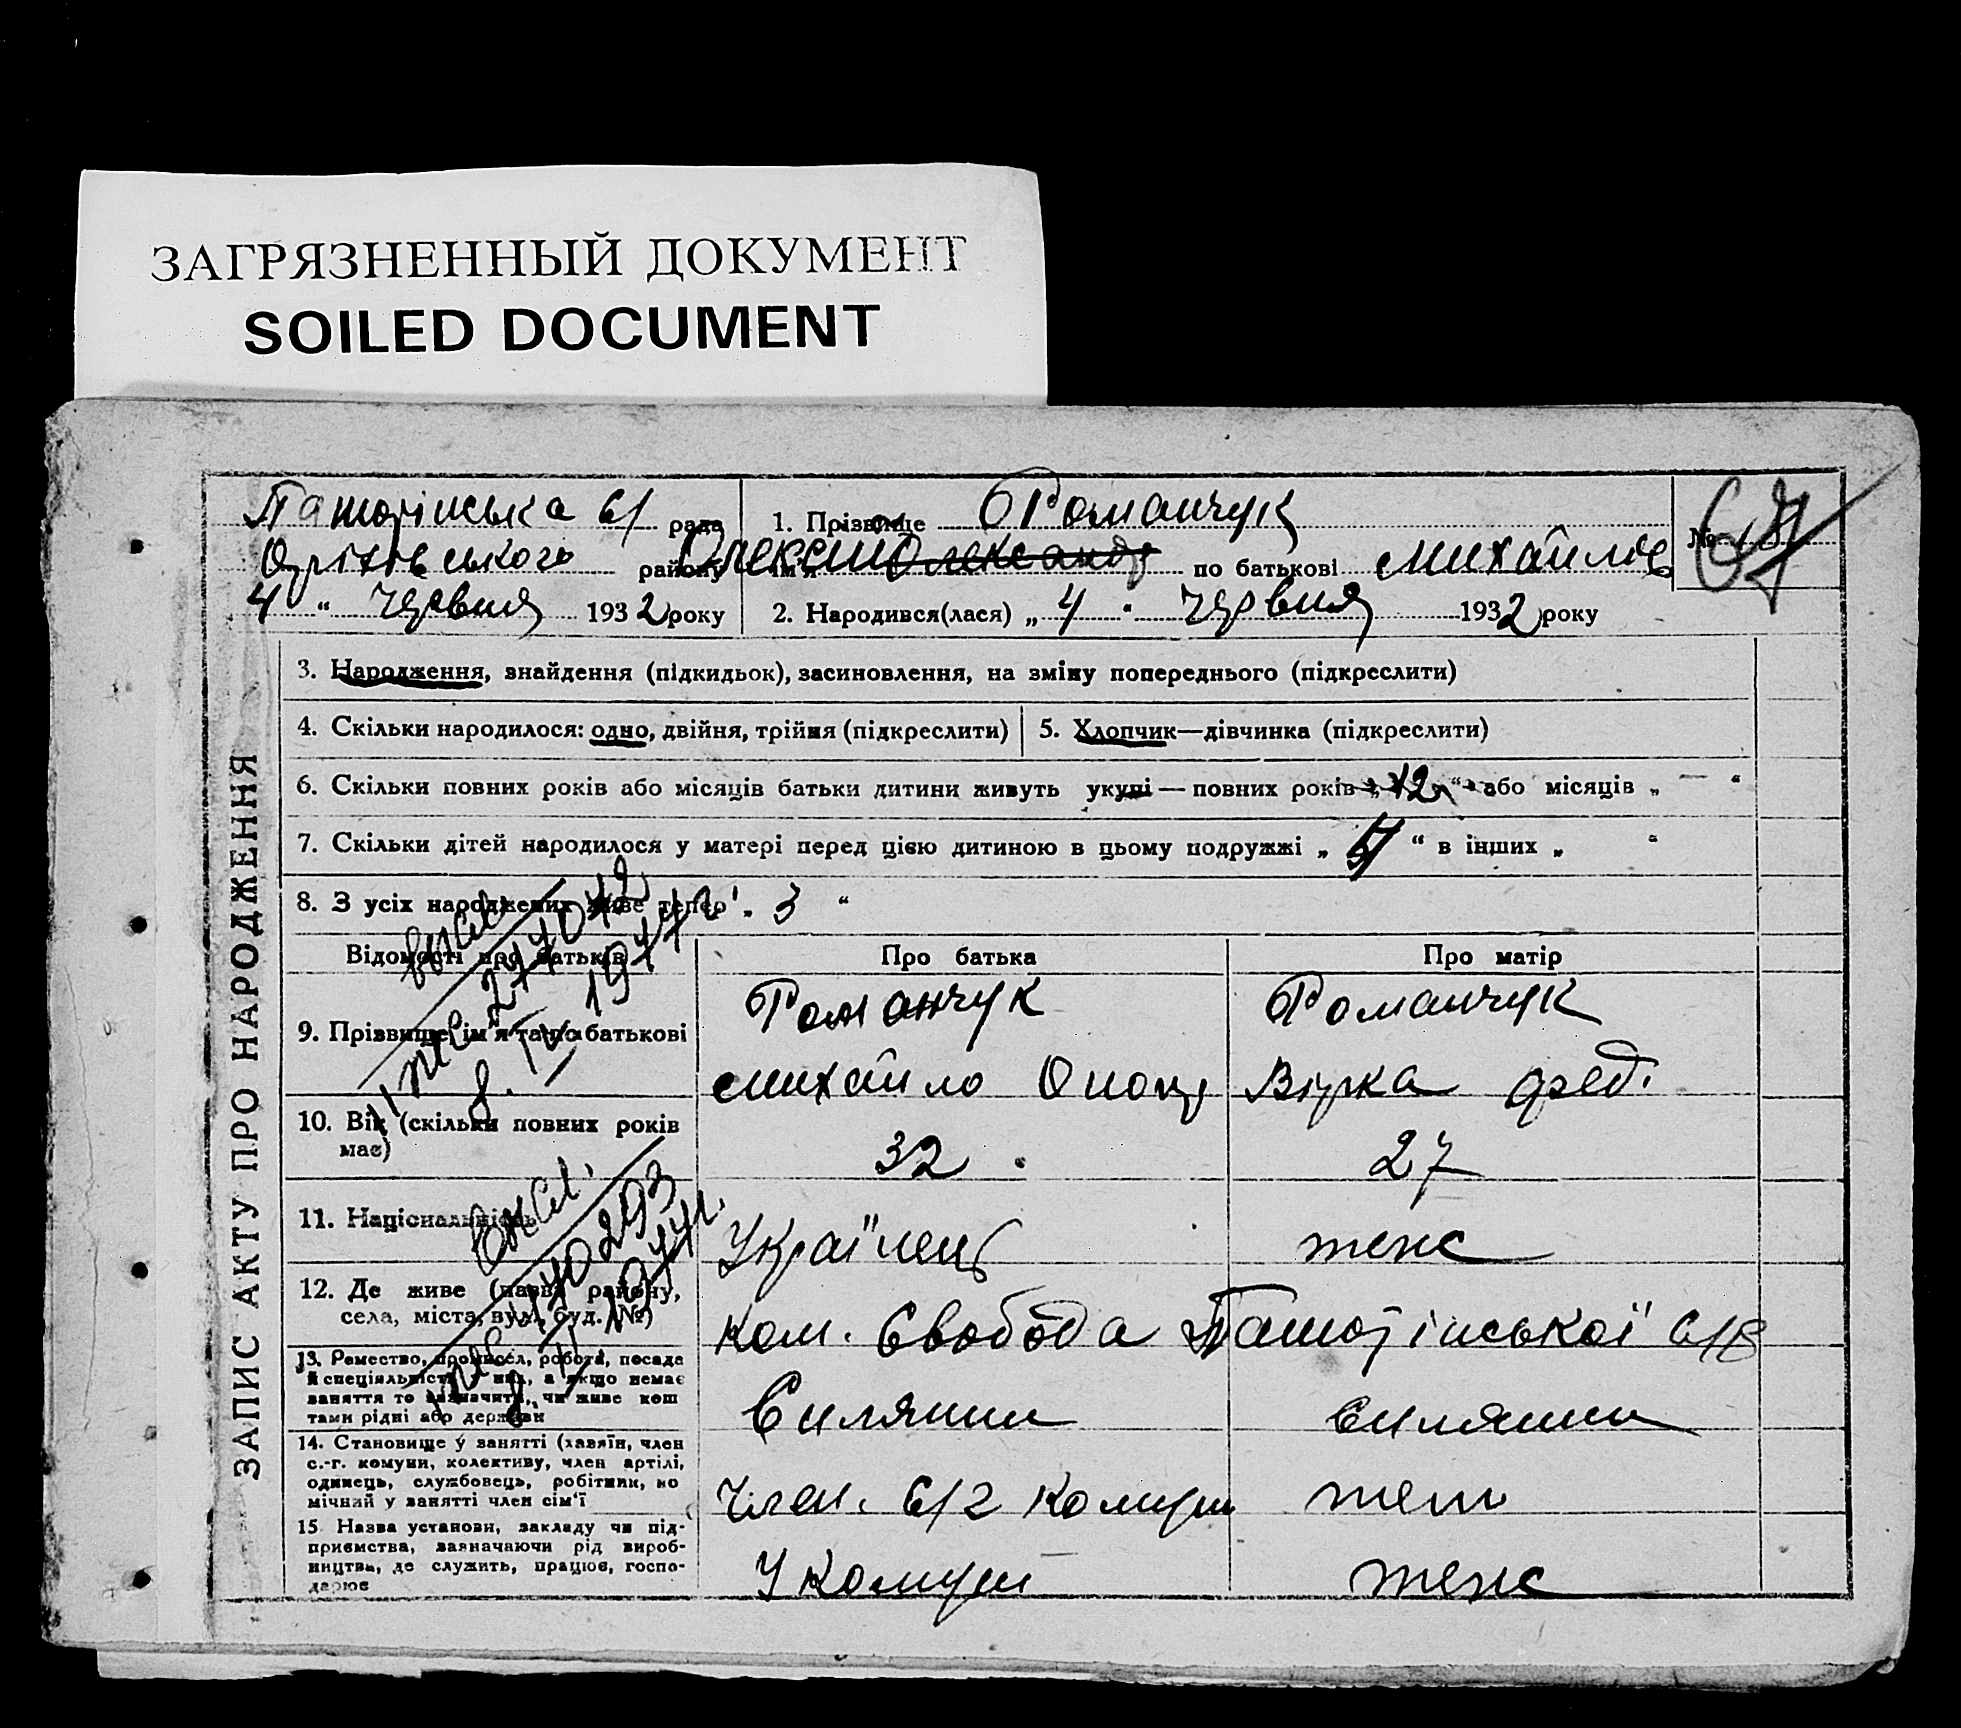 ЗАГРЯЗНЕННЫЙ ДОКУМЕНТ
SOILED DOCUMENT
ЗАПИС АКТУ ПРО НАРОДЖЕННЯ
рада
району
4 " червня 1932 року
1. Прізвище Романчук
ім'я Олексій Олександр по батькові Михайлов
2. Народився(лася) „ 4 " червня 1932 року
№
3. Народження, знайдення (підкидьок), засиновлення, на зміну попереднього (підкреслити)
4. Скільки народилося: одно, двійня, трійня (підкреслити)
5. Хлопчик—дівчинка (підкреслити)
6. Скільки повних років або місяців батьки дитини живуть укупі — повних років „ 12 “ або місяців „ — “
7. Скільки дітей народилося у матері перед цією дитиною в цьому подружжі „ “ в інших „ “
8. З усіх народжених живе тепер „ 3 “
Відомості про батьків
Про батька
Про матір
9. Прізвище, ім'я та по батькові
Романчук
Михайло
Романчук
Вірка Фед.
10. Вік (скільки повних років має)
32
27
11. Національність
Українець
теж
12. Де живе (назва району, села, міста, вул., буд. №)
ком. Свобода
13. Ремество, промисел, робота, посада
й спеціяльність в них, а якщо немає
заняття то зазначити, чи живе кош
тами рідні або держави
Селянин
Селянин
14. Становище у занятті (хазяїн, член
с.-г. комуни, колективу, член артілі,
одинець, службовець, робітник, по
мічний у занятті член сім'ї
Член. с/г комуни
теж
15 Назва установи, закладу чи під-
приємства, зазначаючи рід вироб-
ництва, де служить, працює, госпо-
дарює
У комуні
теж